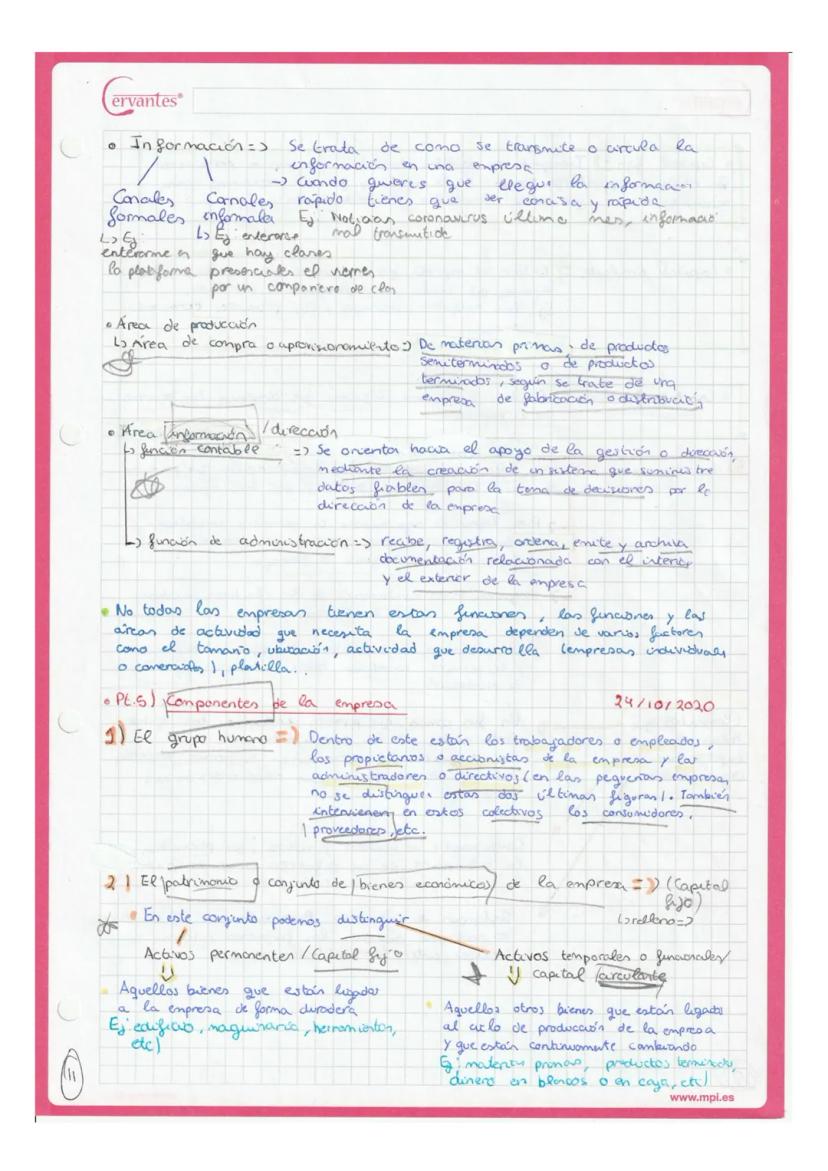 Cervantes®
• Información => Se trata de como se transmite o circula la
información en una empresa
-> Cuando quieres que llegue la informacion
Canales Canales rápido tienes que ser concisa y rápida
formales informales Ej: Noticias coronavirus último mes, informació
↳ Ej: ↳ Ej enterarse mal transmitida
enterarme en que hay clases
la plataforma presenciales el viernes
por un compañero de clas
• Área de producción
↳ Área de compra o aprovisionamiento => De materias primas, de productos
semiterminados o de productos
terminados, según se trate de una
empresa de fabricación o distribución
• Área información / dirección
↳ función contable => Se orienta hacia el apoyo de la gestión o dirección,
mediante la creación de un sistema que suministre
datos fiables para la toma de decisiones por la
dirección de la empresa
↳ función de administración => recibe, registra, ordena, emite y archiva
documentación relacionada con el interior
y el exterior de la empresa
• No todas las empresas tienen estas funciones, las funciones y las
áreas de actividad que necesita la empresa dependen de varios factores
como el tamaño, ubicación, actividad que desarrolla (empresas individuales
o comerciales), plantilla..
• Pt.5) Componentes de la empresa 24/10/2020
1) El grupo humano => Dentro de este están los trabajadores o empleados,
los propietarios o accionistas de la empresa y los
administradores o directivos (en las pequeñas empresas
no se distinguen estas dos últimas figuras). También
intervienen en estos colectivos los consumidores,
proveedores, etc.
2) El patrimonio o conjunto de bienes económicos de la empresa => (Capital
fijo)
• En este conjunto podemos distinguir ↳ relleno =>
Activos permanentes / Capital fijo Activos temporales o funcionales/
capital circulante
• Aquellos bienes que están ligados
a la empresa de forma duradera
Ej: edificio, maquinaria, herramientas,
etc)
• Aquellos otros bienes que están ligados
al ciclo de producción de la empresa
y que están continuamente cambiando
Ej: materias primas, productos terminado,
dinero en bancos o en caja, etc)
11
www.mpi.es